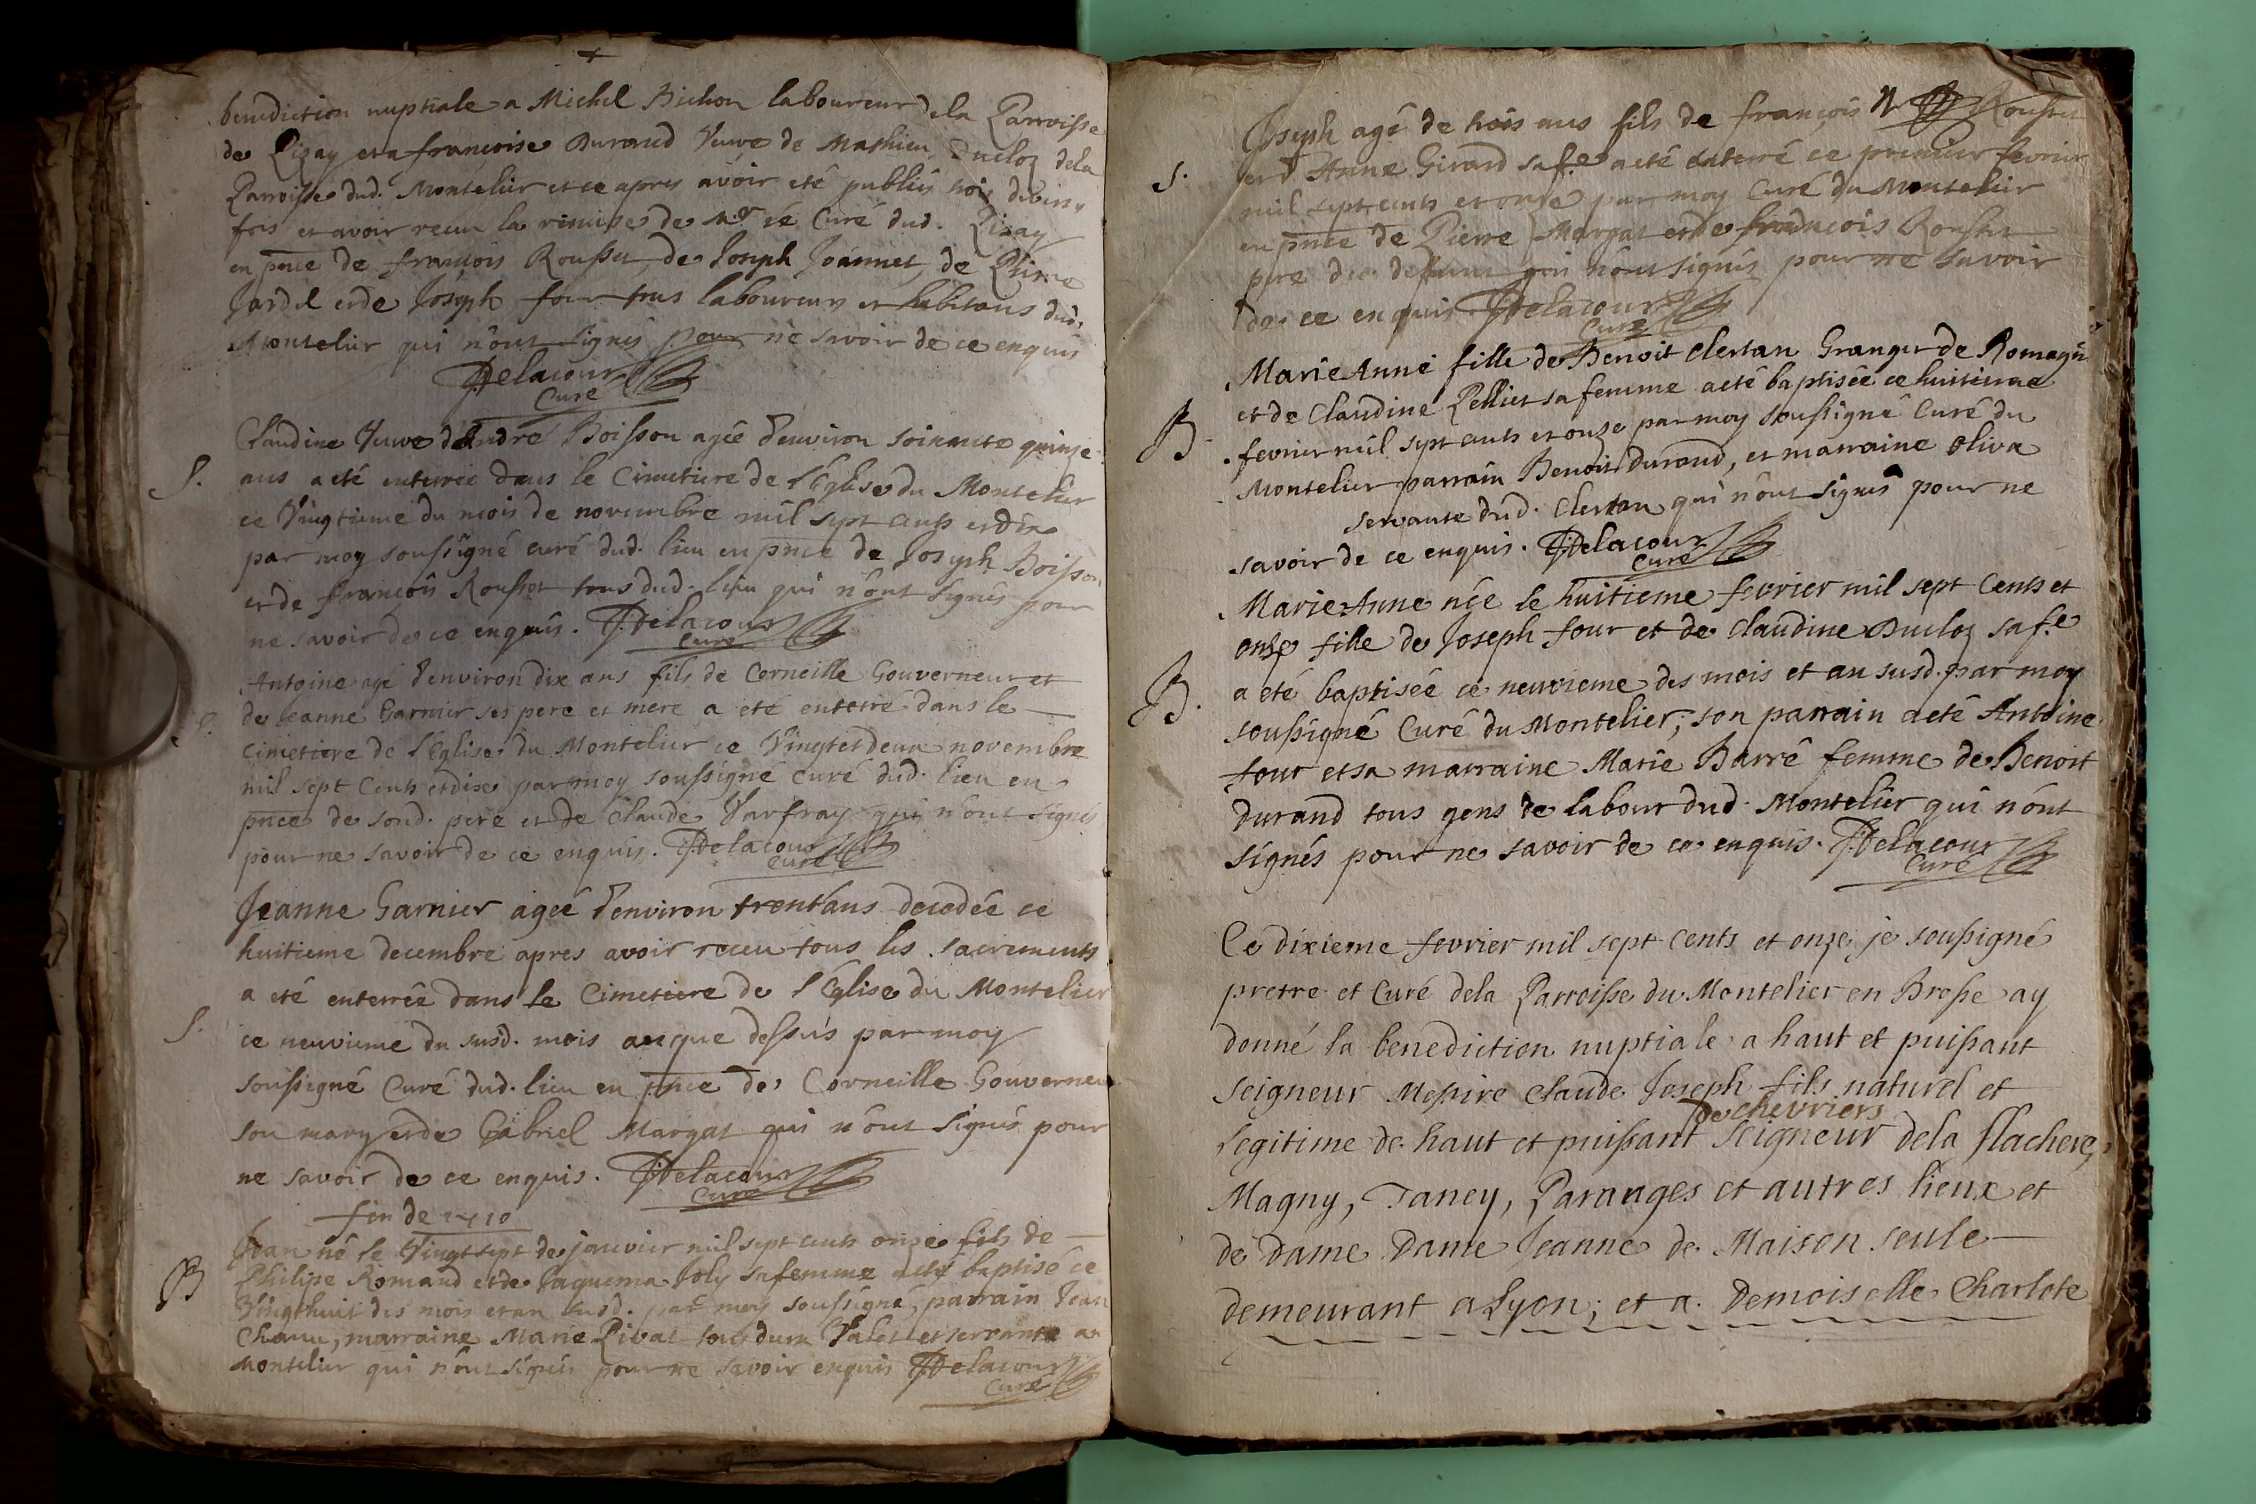 benediction nuptiale a Michel Bichon laboureur dela Parroisse
de Pizay et a francoise Durand Veuve de Mathieu Ducloz dela
Parroisse dud. Montelier et ce apres avoir eté publiés trois
fois et avoir receu la remise de Mr le Curé dud. Pizay
en pnce de francois Rousset, de Joseph Joannet, de Pierre
Jardel et de Joseph four tous laboureurs et habitans dud.
Montelier qui n'ont signés pour ne savoir de ce enquis
Delacour
Curé
Claudine Veuve d'Andre Boisson agée d'environ soixante quinze
S. ans a eté enterrée dans le Cimetiere de l'Eglise du Montelier
ce Vingtieme du mois de novembre mil sept cents et dix
par moy soussigné curé dud. lieu en pnce de Joseph Boisson
et de francois Rousset tous dud. lieu qui n'ont signés pour
ne savoir de ce enquis. Delacour
Curé
Antoine agé d'environ dix ans fils de Corneille Gouverneur et
de Jeanne Garnier ses pere et mere a eté enterré dans le
Cimetiere de l'Eglise du Montelier ce Vingt et deux novembre
mil sept Cents et dix par moy soussigné Curé dud. lieu en
pnce de sond. pere et de Claude Varfray qui n'ont signés
pour ne savoir de ce enquis. Delacour
Curé
Jeanne Garnier ageé d'environ trent'ans decedée ce
huitieme decembre apres avoir receu tous les sacrements
a eté enterrée dans le Cimetiere de l'Eglise du Montelier
S. ce neuvieme du susd. mois an que dessus par moy
soussigné Curé dud. lieu en pnce de Corneille Gouverneur
son mary et de Gabriel Margat qui n'ont signés pour
ne savoir de ce enquis. Delacour
Curé
fin de 1710
Jean né le Vingt sept de janvier mil sept cents onze fils de
B Philipe Romand et de Jaquema Joly sa femme a eté baptisé ce
Vingt huit des mois et an susd. par moy soussigné, parrain Jean
marraine Marie Pivat Valet et servante au
Montelier qui n'ont signés pour ne savoir enquis Delacour
Curé
Joseph agé de trois ans fils de francois Rousset
S. et d'Anne Girard sa fe a eté enterré ce premier fevrier
mil sept cents et onze par moy Curé du Montelier
en pnce de Pierre Margat et de francois Rousset
pere du defunt qui n'ont signés pour ne savoir
de ce enquis Delacour
Curé
Marie Anne fille de Benoit Clertan Granger de
et de Claudine Pellier sa femme a eté baptisée ce huitieme
B. fevrier mil sept cents et onze par moy soussigné Curé du
Montelier parrain Benoit Durand, et marraine Oliva
servante dud. Clertan qui n'ont signés pour ne
savoir de ce enquis. Delacour
Curé
Marie Anne née le huitieme fevrier mil sept Cents et
onze fille de Joseph four et de Claudine Ducloz sa fe
B. a eté baptiseé ce neuvieme des mois et an susd. par moy
soussigné Curé du Montelier, son parrain a eté Antoine
four et sa marraine Marie Barré femme de Benoit
Durand tous gens de labour dud. Montelier qui n'ont
signés pour ne savoir de ce enquis. Delacour
Curé
Ce dixieme fevrier mil sept Cents et onze je soussigné
pretre et Curé dela Parroisse du Montelier en Bresse ay
donné la benediction nuptiale a haut et puissant
seigneur Messire Claude Joseph fils naturel et
de chevriers
legitime de haut et puissant seigneur dela flachere,
Magny, Taney, Paranges et autres lieux et
de Dame Dame Jeanne de Maison seule
demeurant a Lyon; et a Demoiselle Charlote